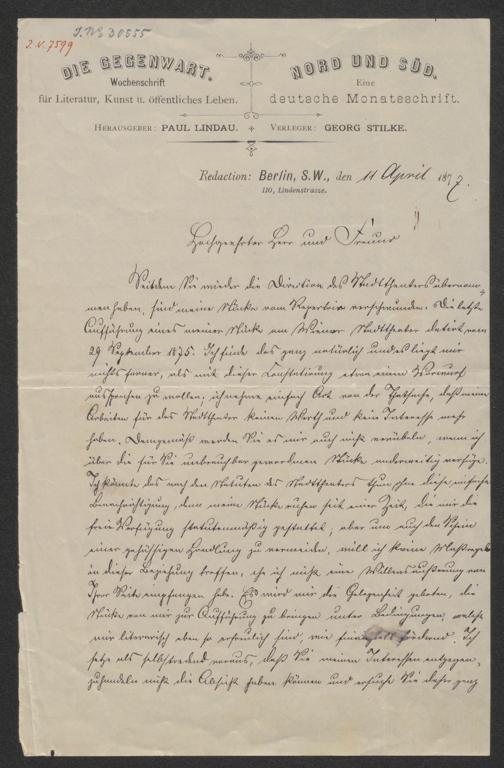 J. N. 30555
J. N. 7599
DIE GEGENWART.
Wochenschrift
für Literatur, Kunst u. öffentliches Leben.
NORD UND SÜD.
Eine
deutsche Monatsschrift.
HERAUSGEBER: PAUL LINDAU.
VERLEGER: GEORG STILKE.
Redaction: Berlin, S.W., den 11 April 1877.
110, Lindenstrasse.
Hochgeehrter Herr und Freund
Seitdem Sie wieder die Direction des Stadttheaters übernom-
men haben, sind meine Stücke vom Repertoir verschwunden. Die letzte
Aufführung eines meiner Stücke am Wiener Stadttheater datirt vom
29 September 1875. Ich finde das ganz natürlich und es liegt mir
nichts ferner, als mit dieser Constatirung etwa einen Vorwurf
aussprechen zu wollen; ich nehme einfach Act von der Thatsache, daß meine
Arbeiten für das Stadttheater keinen Werth und kein Interesse mehr
haben. Demgemäß werden Sie es mir auch nicht verübeln, wenn ich
über die für Sie unbrauchbar gewordenen Stücke anderweitig verfüge.
Ich könnte das nach den Statuten des Stadttheaters thun ohne diese einfache
Benachrichtigung, denn meine Stücke ruhen seit einer Zeit, die mir die
freie Verfügung statutenmäßig gestattet; aber um auch den Schein
einer gehässigen Handlung zu vermeiden, will ich keine Maßregel
in dieser Beziehung treffen, ehe ich nicht eine Willensäußerung von
Ihrer Seite empfangen habe. Es wird mir die Gelegenheit geboten, die
Stücke von mir zur Aufführung zu bringen unter Bedingungen, welche
mir literarisch eben so erfreulich sind, wie finanziell fördernd. Ich
setze als selbstredend voraus, daß Sie meinen Interessen entgegen-
zuhandeln nicht die Absicht haben können und ersuche Sie daher ganz